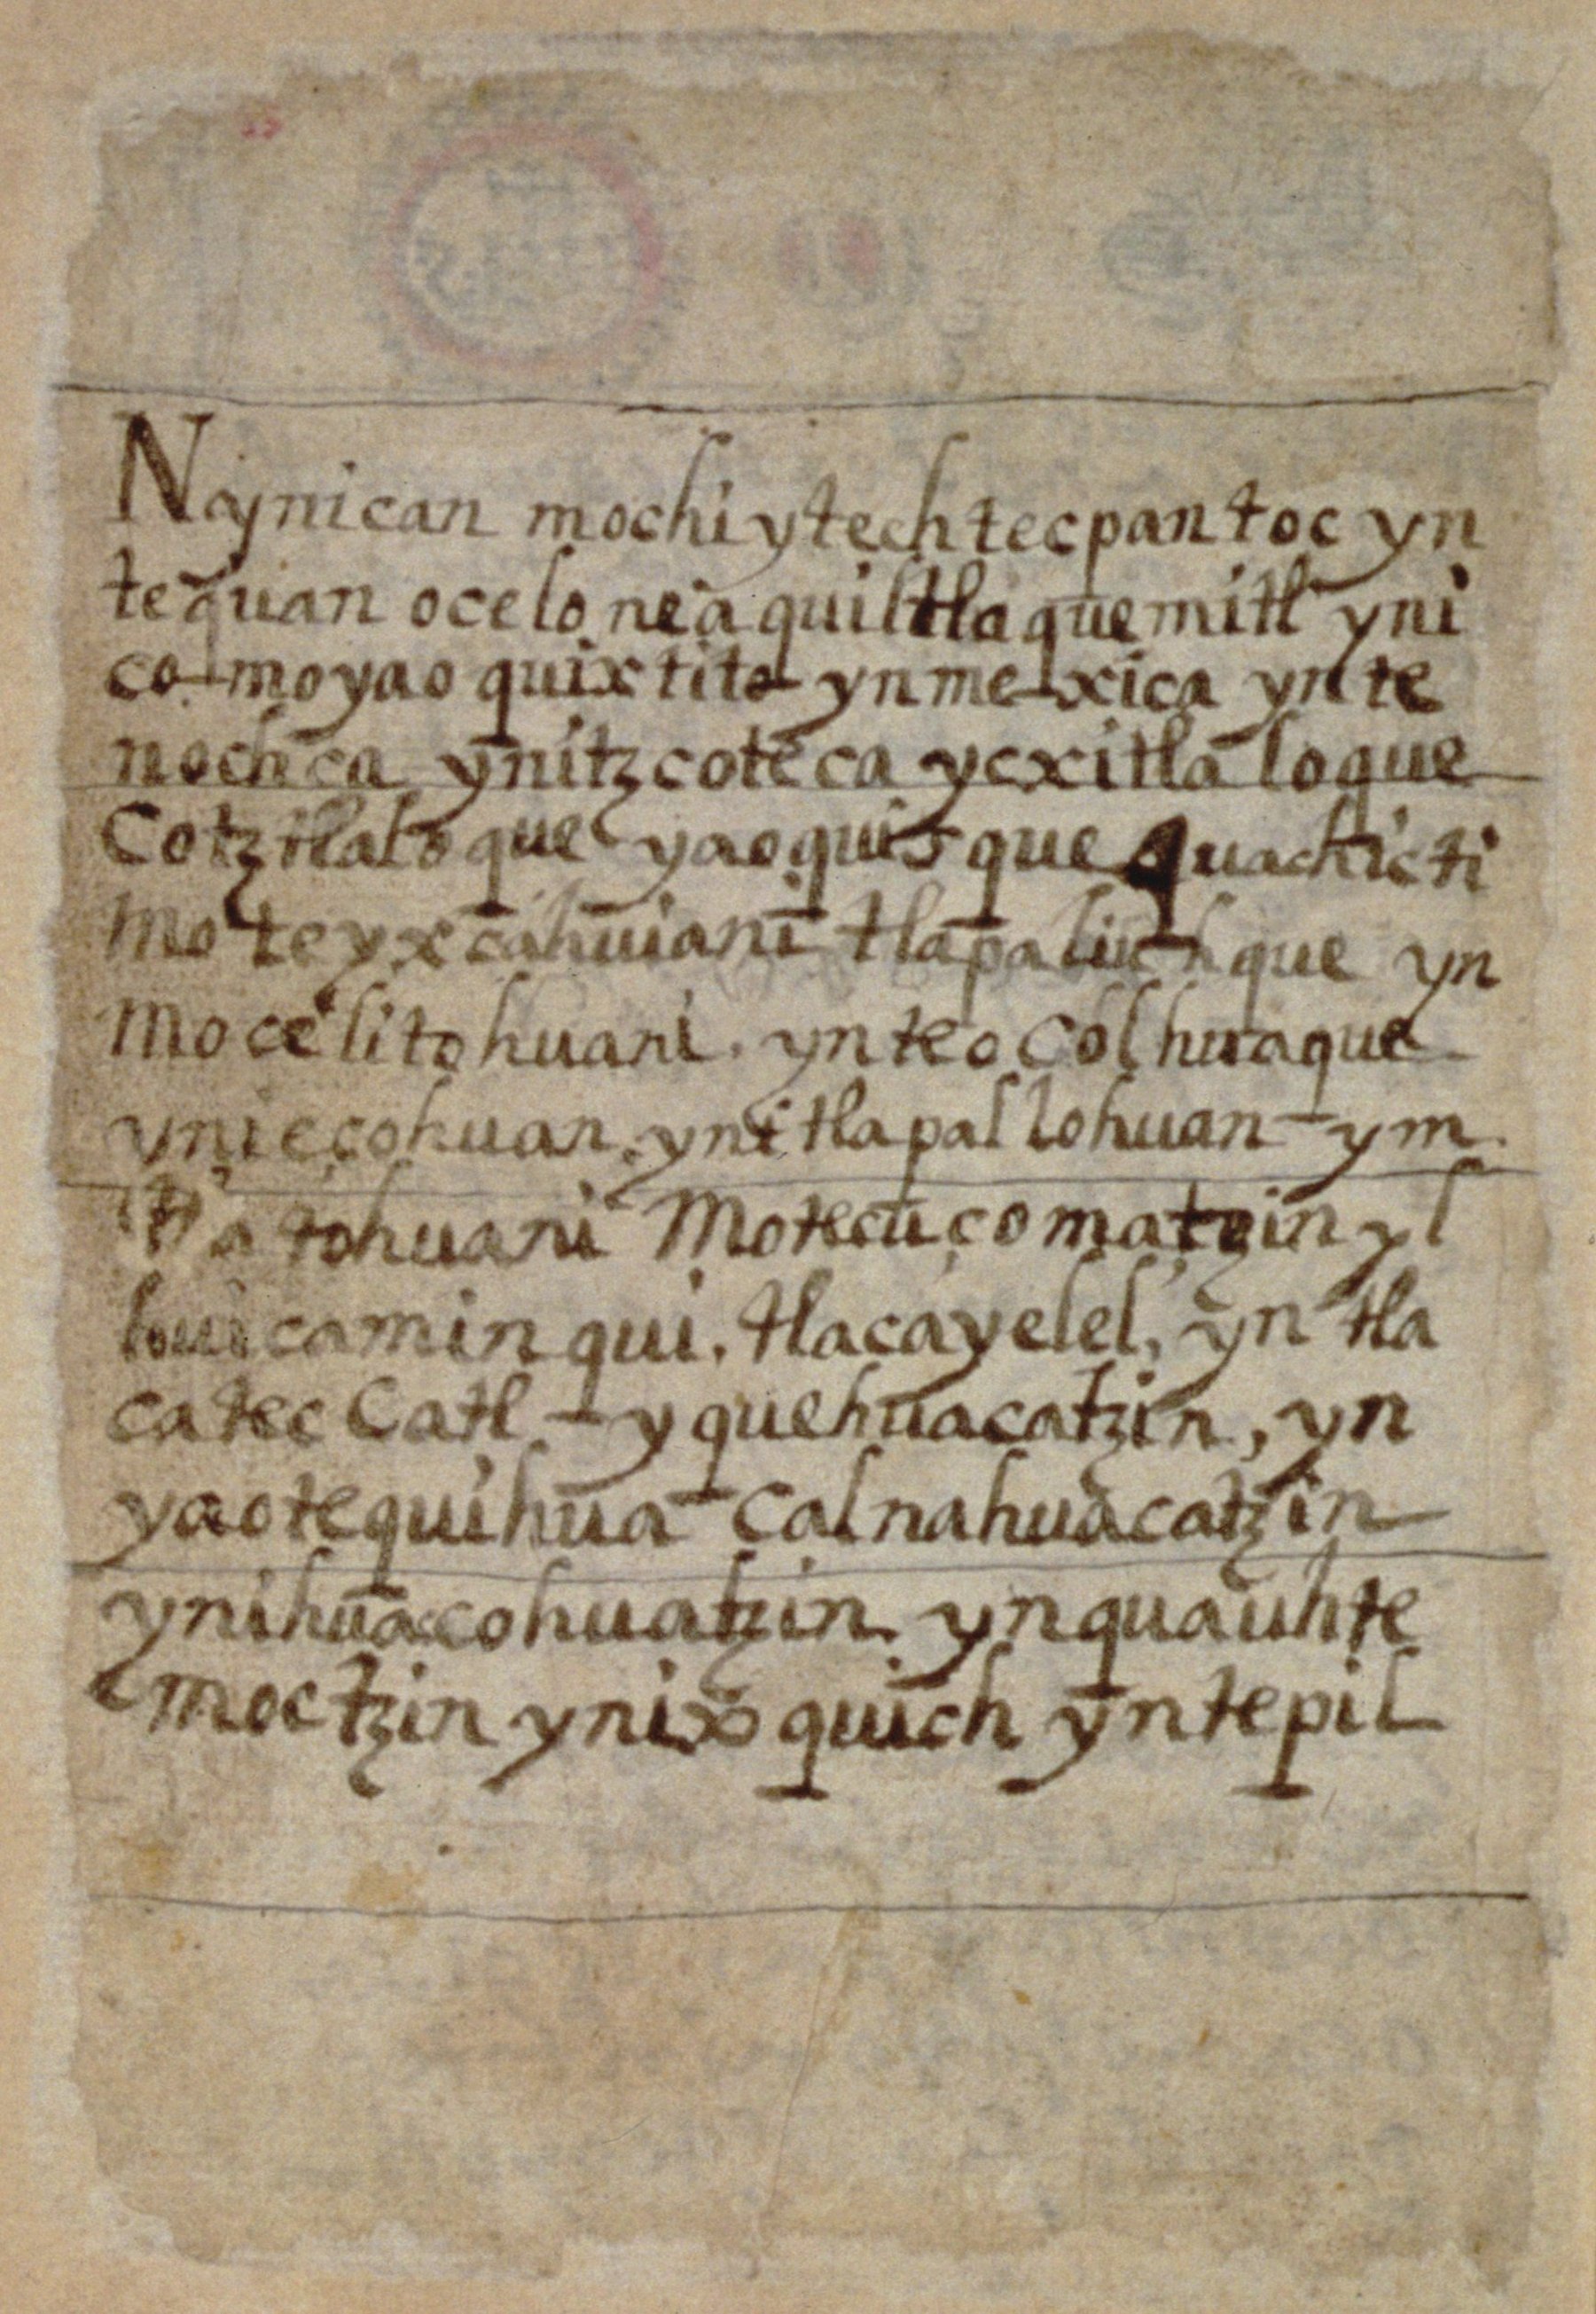 Naynican mochi ytech tecpantoc yn
tequan ocelo neaquiltlaquemitl yni
co moyaoquixtito yn mexica yn te
nochca yn itzcoteca ycxitlaloque
Cotztlaloque yaoquisque quachicti
moteyxcahuiani tlapaliuhque yn
mocelitohuani. yn teocolhuaque
yniecohuan. ynitlapallohuan ym
tlatohuani Motecuçomatzin yl
huicaminqui. tlacayelel, yn tla
cateccatl - yquehuacatzin, yn
yaotequihua calnahuacatzin
ynihuacohuatzin. yn quauhte
moctzin ynixquich yn tepil